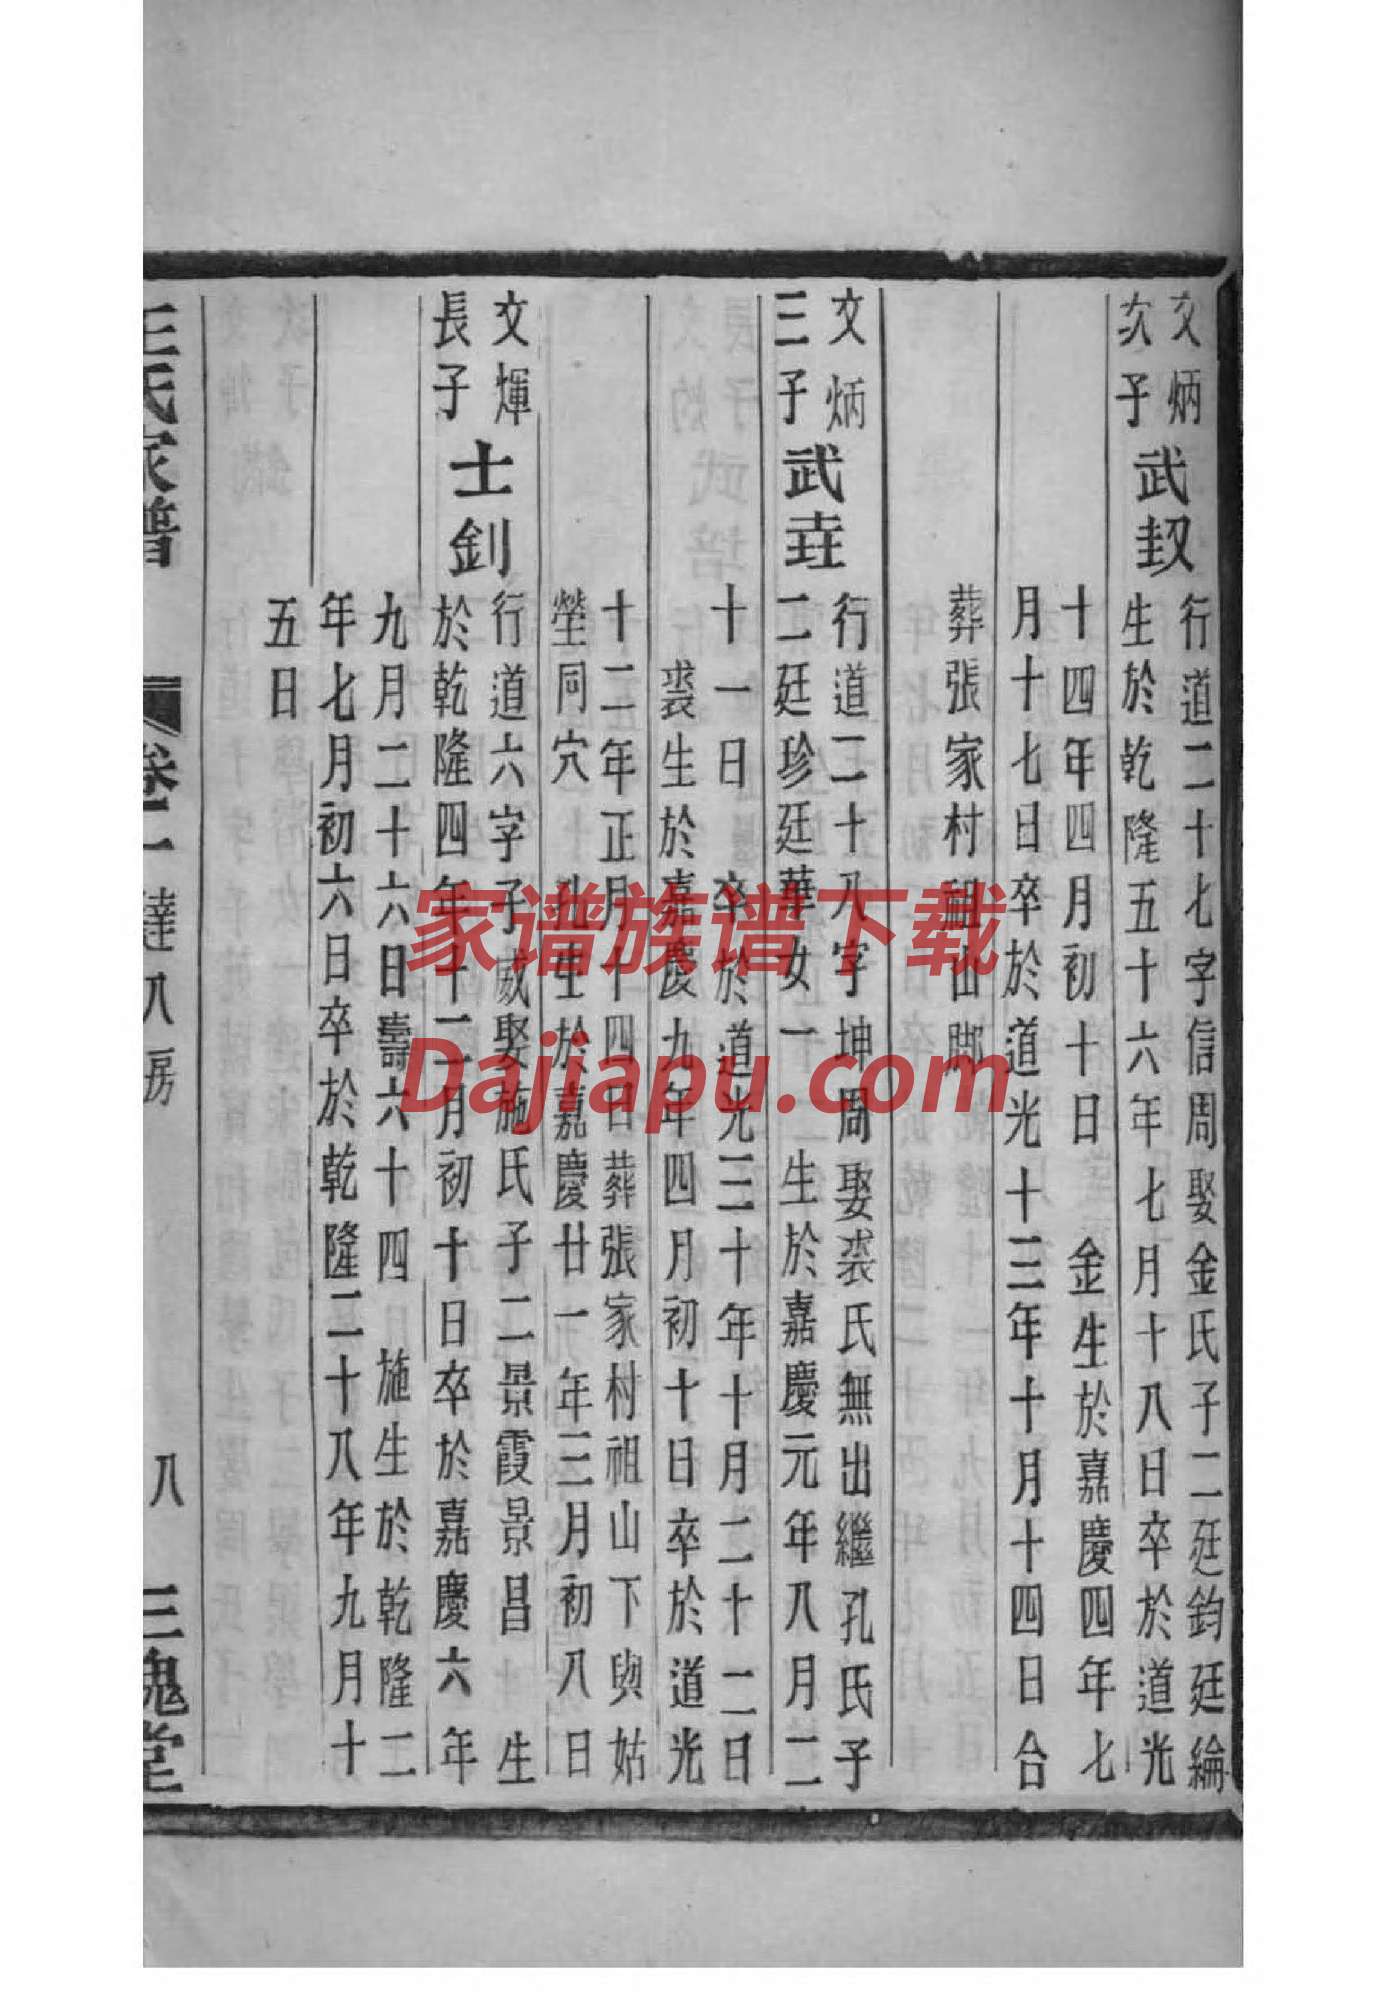 文炳
次子
武㓞
行道二十七字信周娶金氏子二廷鈞廷綸
生於乾隆五十六年七月十八日卒於道光
十四年四月初十日 金生於嘉慶四年七
月十七日卒於道光十三年十月十四日合
葬張家村祖山脚
文炳
三子
武垚
行道二十八字坤周娶裘氏無出繼孔氏子
二廷珍廷華女一 生於嘉慶元年八月二
十一日 卒於道光三十年十月二十二日
裘生於嘉慶九年四月初十日卒於道光
十二年正月十四日葬張家村祖山下與姑
塋同穴 孔生於嘉慶廿一年三月初八日
文煇
長子
士釗
行道六字子威娶施氏子二景霞景昌 生
於乾隆四年十二月初十日卒於嘉慶六年
九月二十六日壽六十四 施生於乾隆二
年七月初六日卒於乾隆二十八年九月十
五日
王氏家譜
卷二 達八房
八
三槐堂
家谱族谱下载
Dajiapu.com